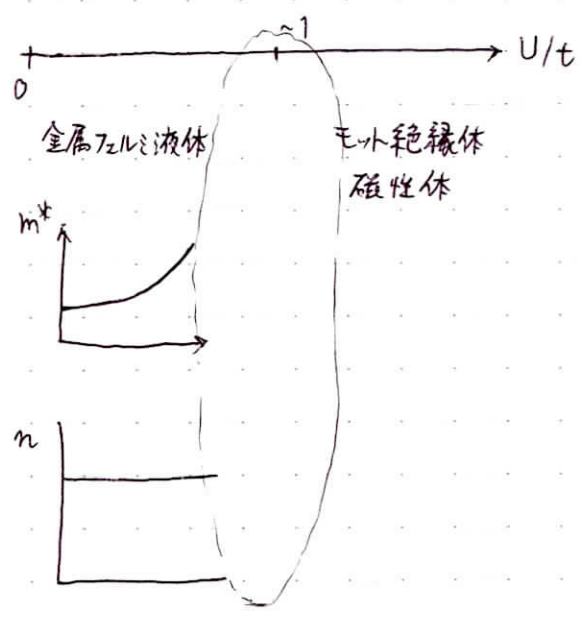 ~1
U/t
0
金属フェルミ液体
モット絶縁体
磁性体
m*
n